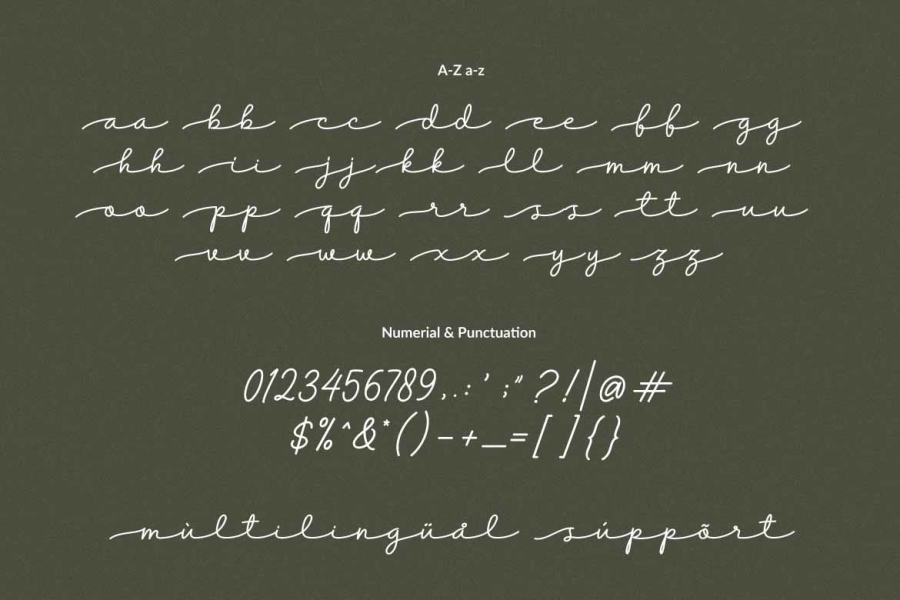 A-Z a-z
aa bb cc dd ee ff gg
hh ii jj kk ll mm nn
oo pp qq rr ss tt uu
vv ww xx yy zz
Numerial & Punctuation
0123456789,.:' ;"?!|@#
$%^&*()-+_=[]{}
mùltilingüål súppõrt